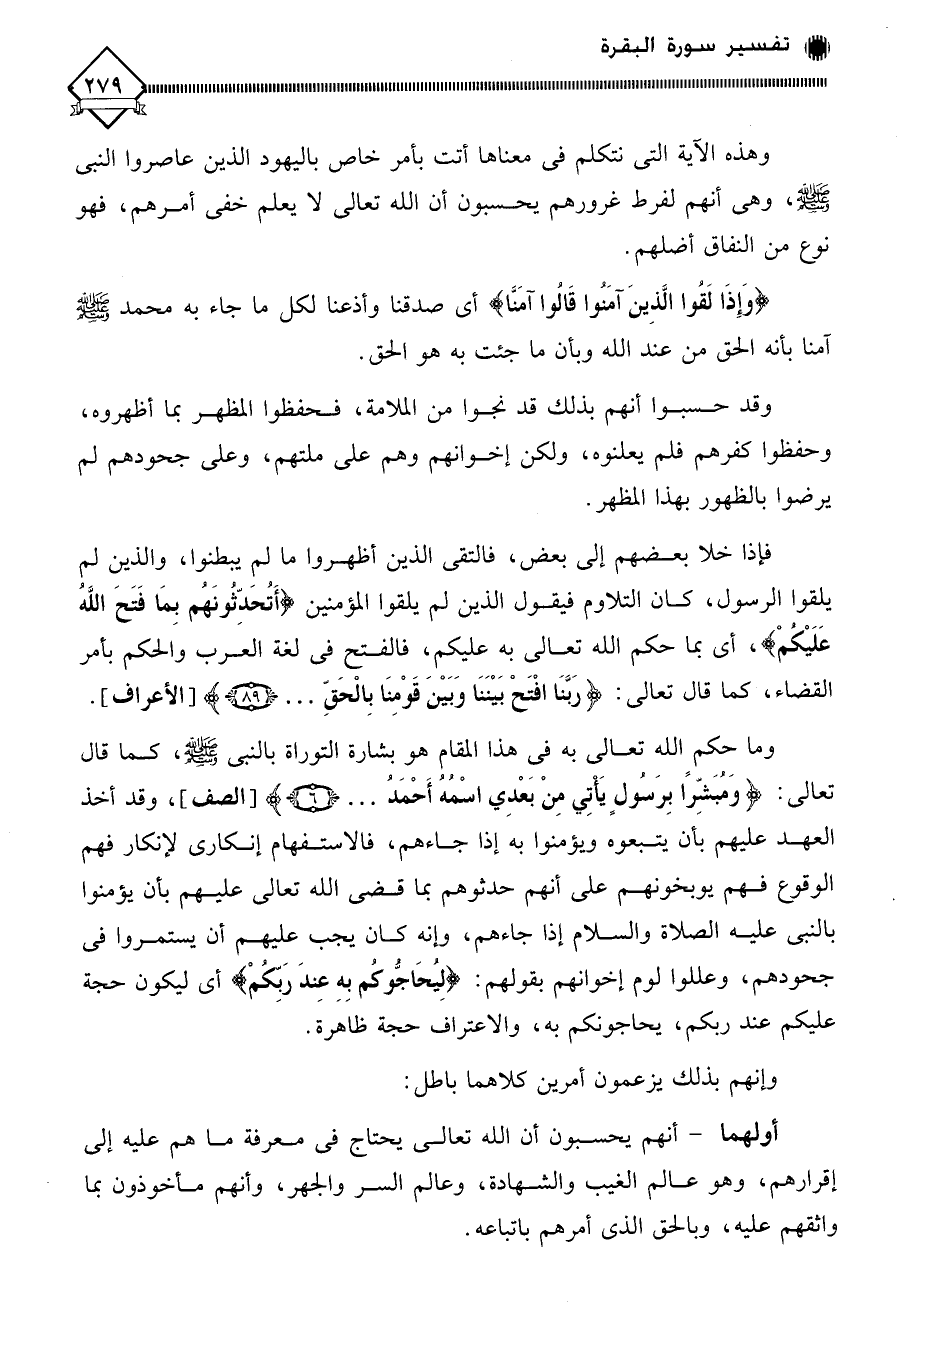 تفسير سورة البقرة
٢٧٩
وهذه الآية التى نتكلم فى معناها أتت بأمر خاص باليهود الذين عاصروا النبى
ﷺ، وهى أنهم لفرط غرورهم يحسبون أن الله تعالى لا يعلم خفى أمرهم، فهو
نوع من النفاق أضلهم.
﴿وَإِذَا لَقُوا الَّذِينَ آمَنُوا قَالُوا آمَنَّا﴾ أى صدقنا وأذعنا لكل ما جاء به محمد ﷺ
آمنا بأنه الحق من عند الله وبأن ما جئت به هو الحق.
وقد حسبوا أنهم بذلك قد نجوا من الملامة، فحفظوا المظهر بما أظهروه،
وحفظوا كفرهم فلم يعلنوه، ولكن إخوانهم وهم على ملتهم، وعلى جحودهم لم
يرضوا بالظهور بهذا المظهر.
فإذا خلا بعضهم إلى بعض، فالتقى الذين أظهروا ما لم يبطنوا، والذين لم
يلقوا الرسول، كان التلاوم فيقول الذين لم يلقوا المؤمنين ﴿أَتُحَدِّثُونَهُم بِمَا فَتَحَ اللَّهُ
عَلَيْكُمْ﴾، أى بما حكم الله تعالى به عليكم، فالفتح فى لغة العرب والحكم بأمر
القضاء، كما قال تعالى: ﴿رَبَّنَا افْتَحْ بَيْنَنَا وَبَيْنَ قَوْمِنَا بِالْحَقِّ ... ﴿٨٩﴾﴾ [الأعراف].
وما حكم الله تعالى به فى هذا المقام هو بشارة التوراة بالنبى ﷺ، كما قال
تعالى: ﴿وَمُبَشِّرًا بِرَسُولٍ يَأْتِي مِنْ بَعْدِي اسْمُهُ أَحْمَدُ ... ﴿٦﴾﴾ [الصف]، وقد أخذ
العهد عليهم بأن يتبعوه ويؤمنوا به إذا جاءهم، فالاستفهام إنكارى لإنكار فهم
الوقوع فهم يوبخونهم على أنهم حدثوهم بما قضى الله تعالى عليهم بأن يؤمنوا
بالنبى عليه الصلاة والسلام إذا جاءهم، وإنه كان يجب عليهم أن يستمروا فى
جحودهم، وعللوا لوم إخوانهم بقولهم: ﴿لِيُحَاجُّوكُم بِهِ عِندَ رَبِّكُمْ﴾ أى ليكون حجة
عليكم عند ربكم، يحاجونكم به، والاعتراف حجة ظاهرة.
وإنهم بذلك يزعمون أمرين كلاهما باطل:
أولهما - أنهم يحسبون أن الله تعالى يحتاج فى معرفة ما هم عليه إلى
إقرارهم، وهو عالم الغيب والشهادة، وعالم السر والجهر، وأنهم مأخوذون بما
واثقهم عليه، وبالحق الذى أمرهم باتباعه.